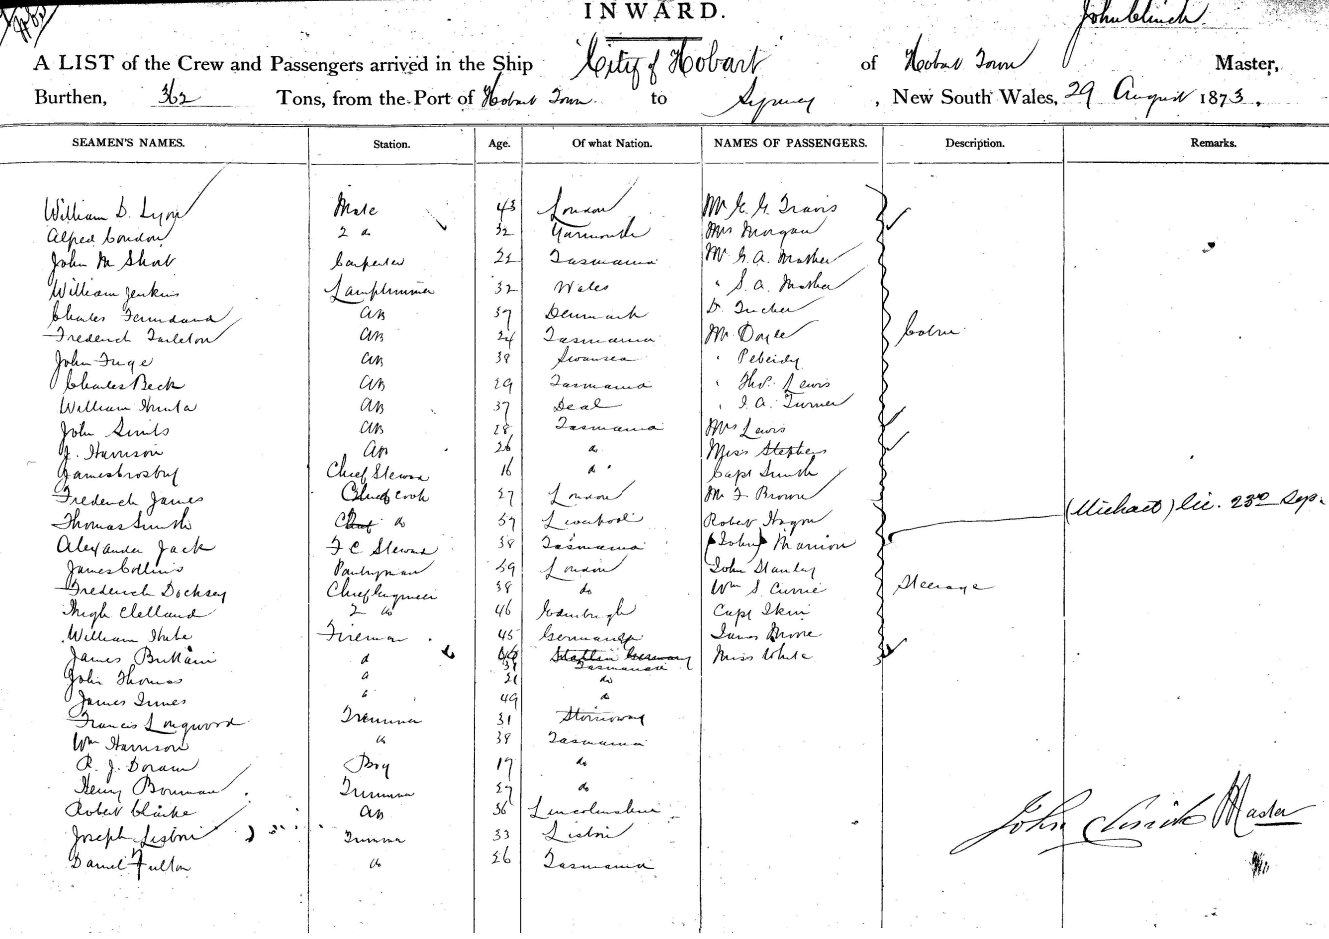 INWARD.
John Clinch
A LIST of the Crew and Passengers arrived in the Ship "City of Hobart" of Hobart Town Master,
Burthen, 362 Tons, from the Port of Hobart Town to Sydney, New South Wales, 29 August 1873.
SEAMEN'S NAMES. Station. Age. Of what Nation. NAMES OF PASSENGERS. Description. Remarks.
William D. Lyon Mate 43 London Mr E. G. Travis
Alfred Condon 2 do 32 Yarmouth Mrs Morgan
John M Short Carpenter 22 Tasmania Mr G. A. Mather
William Jenkins Lamptrimmer 32 Wales " S. A. Mather
Charles AB 37 Denmark Dr Tucker
Frederick Tarleton AB 24 Tasmania Mr Doyle Cabin
John Fuge AB 38 Swansea "
Charles Beck AB 29 Tasmania " Thos. Lewis
William Hunta AB 37 Deal " J. A. Turner
John Smith AB 28 Tasmania Mrs Lewis
J. Harrison AB 26 do Miss Stephens
James Crosby Chief Steward 16 do Capt Smith
Frederick James Chief cook 27 London Mr F Brown
Thomas Smith do 37 Liverpool Robert (Michael) lic. 23rd Sep.
Alexander Jack F C Steward 38 Tasmania (John) Marion
James Collins Pantryman 39 London John Stanley
Frederick Docksey Chief Engineer 38 do Wm S. Currie Steerage
Hugh Clelland 2 do 46 Edinburgh Capt
William Fireman 45 Germany James
James Brittain do 38 Tasmania Miss White
John Thomas do 21 do
James Innes do 49 do
Francis Longwood Trimmer 31 Stornoway
Wm Harrison do 38 Tasmania
R. J. Doran Boy 17 do
Henry Bowman Trimmer 27 do
Robert Clarke AB 36 Lincolnshire
Joseph Lisbon Trimmer 33 Lisbon
Daniel Fulton do 26 Tasmania
John Clinch Master